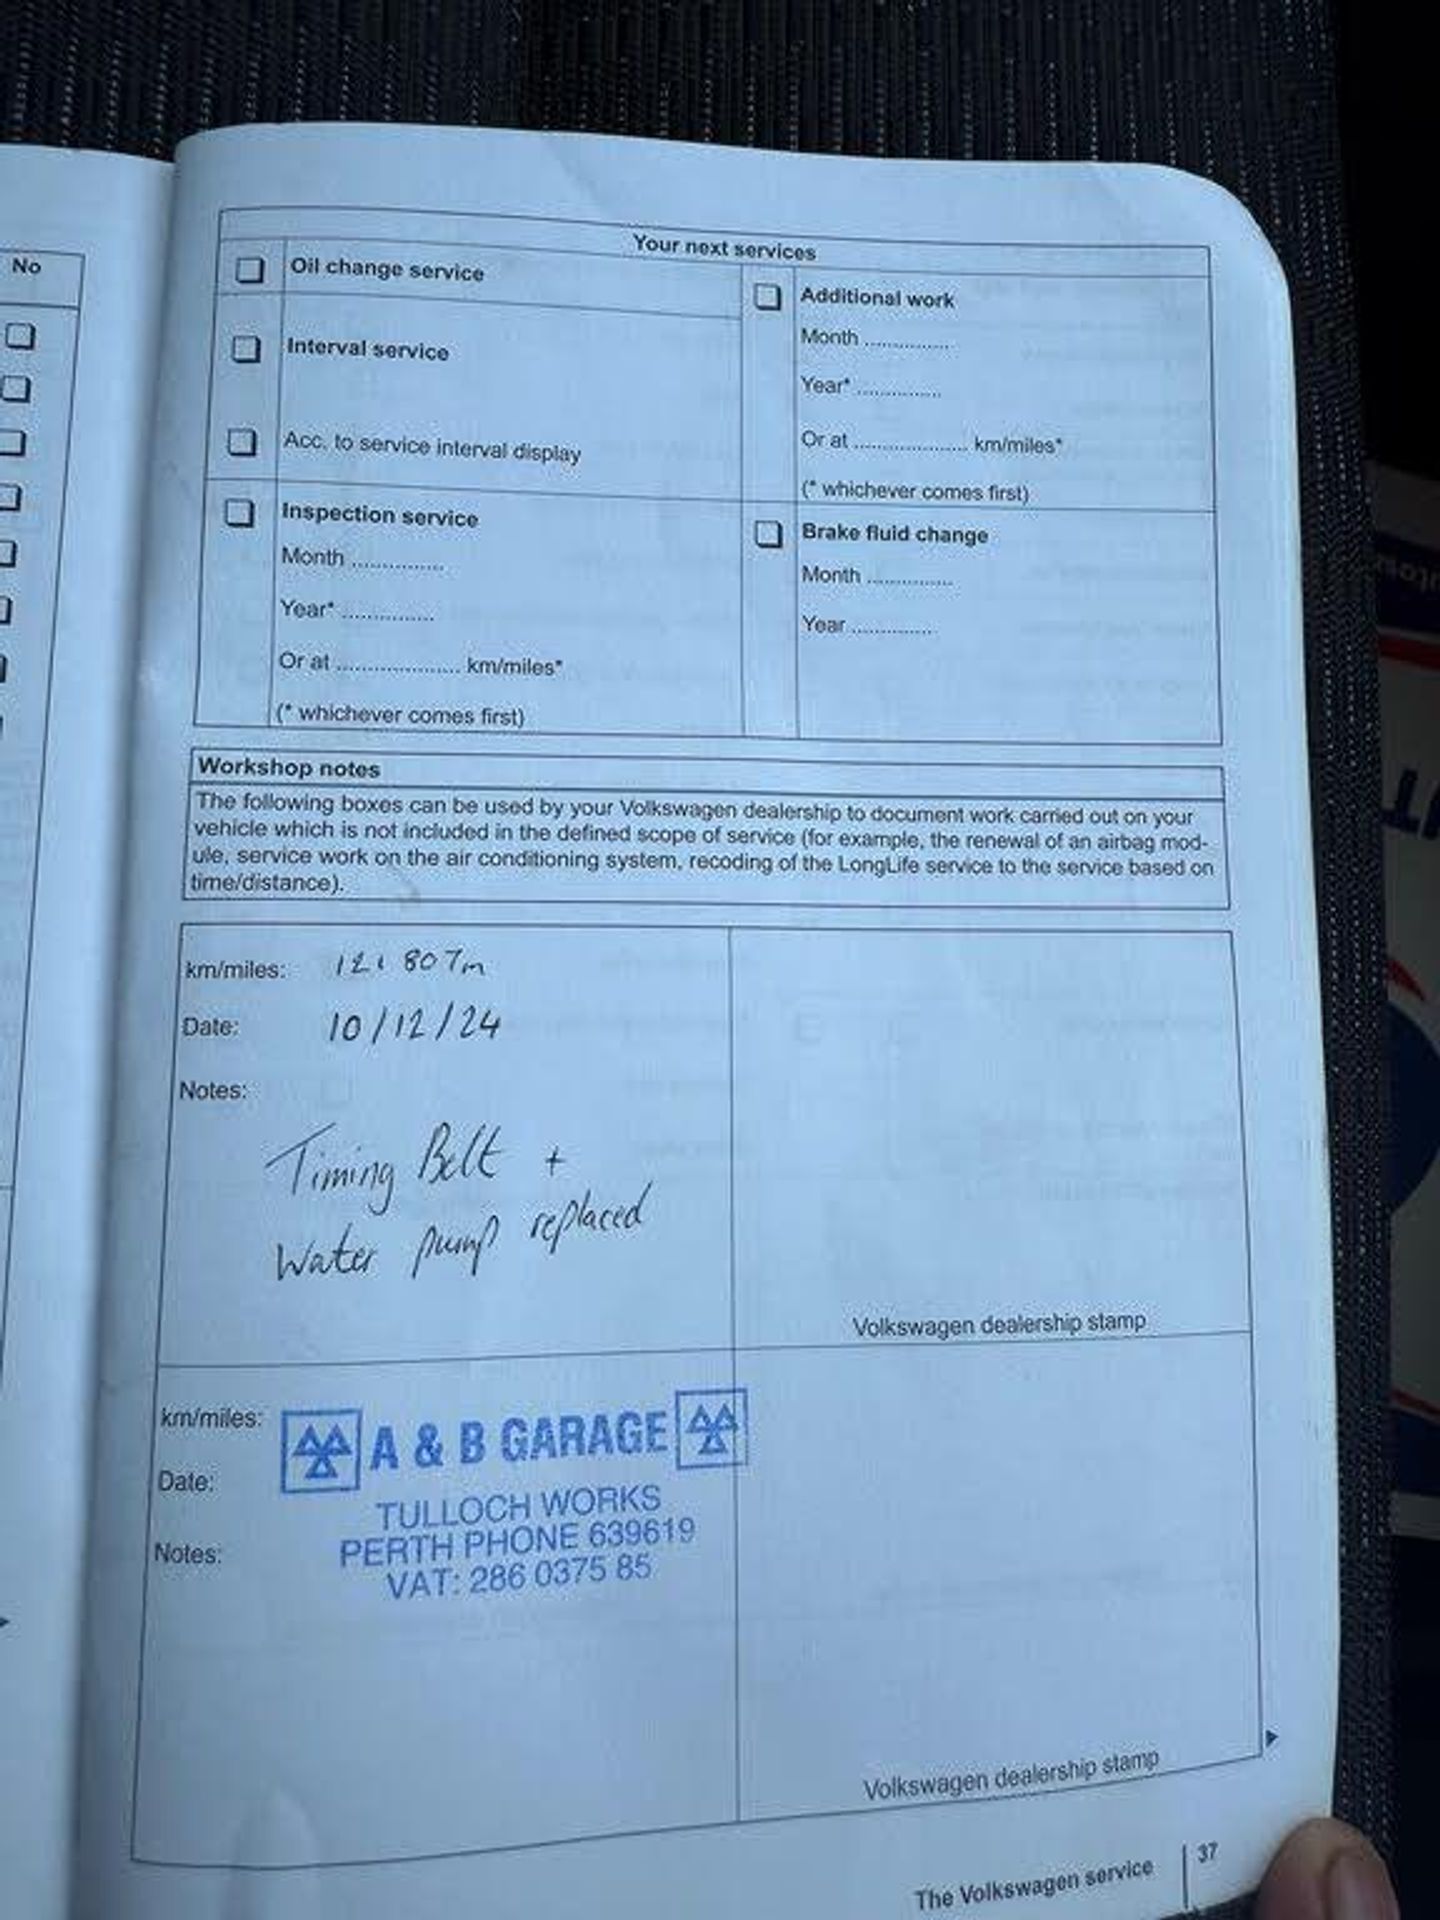 No
Your next services
Oil change service
Interval service
Acc. to service interval display
Inspection service
Month ...............
Year* ...............
Or at .................... km/miles*
(* whichever comes first)
Additional work
Month ..............
Year* ..............
Or at ................... km/miles*
(* whichever comes first)
Brake fluid change
Month ..............
Year ..............
Workshop notes
The following boxes can be used by your Volkswagen dealership to document work carried out on your
vehicle which is not included in the defined scope of service (for example, the renewal of an airbag mod-
ule, service work on the air conditioning system, recoding of the LongLife service to the service based on
time/distance).
km/miles: 121807m
Date: 10/12/24
Notes:
Timing Belt +
Water pump replaced
Volkswagen dealership stamp
km/miles:
Date:
Notes:
A & B GARAGE
TULLOCH WORKS
PERTH PHONE 639619
VAT: 286 0375 85
Volkswagen dealership stamp
The Volkswagen service 37